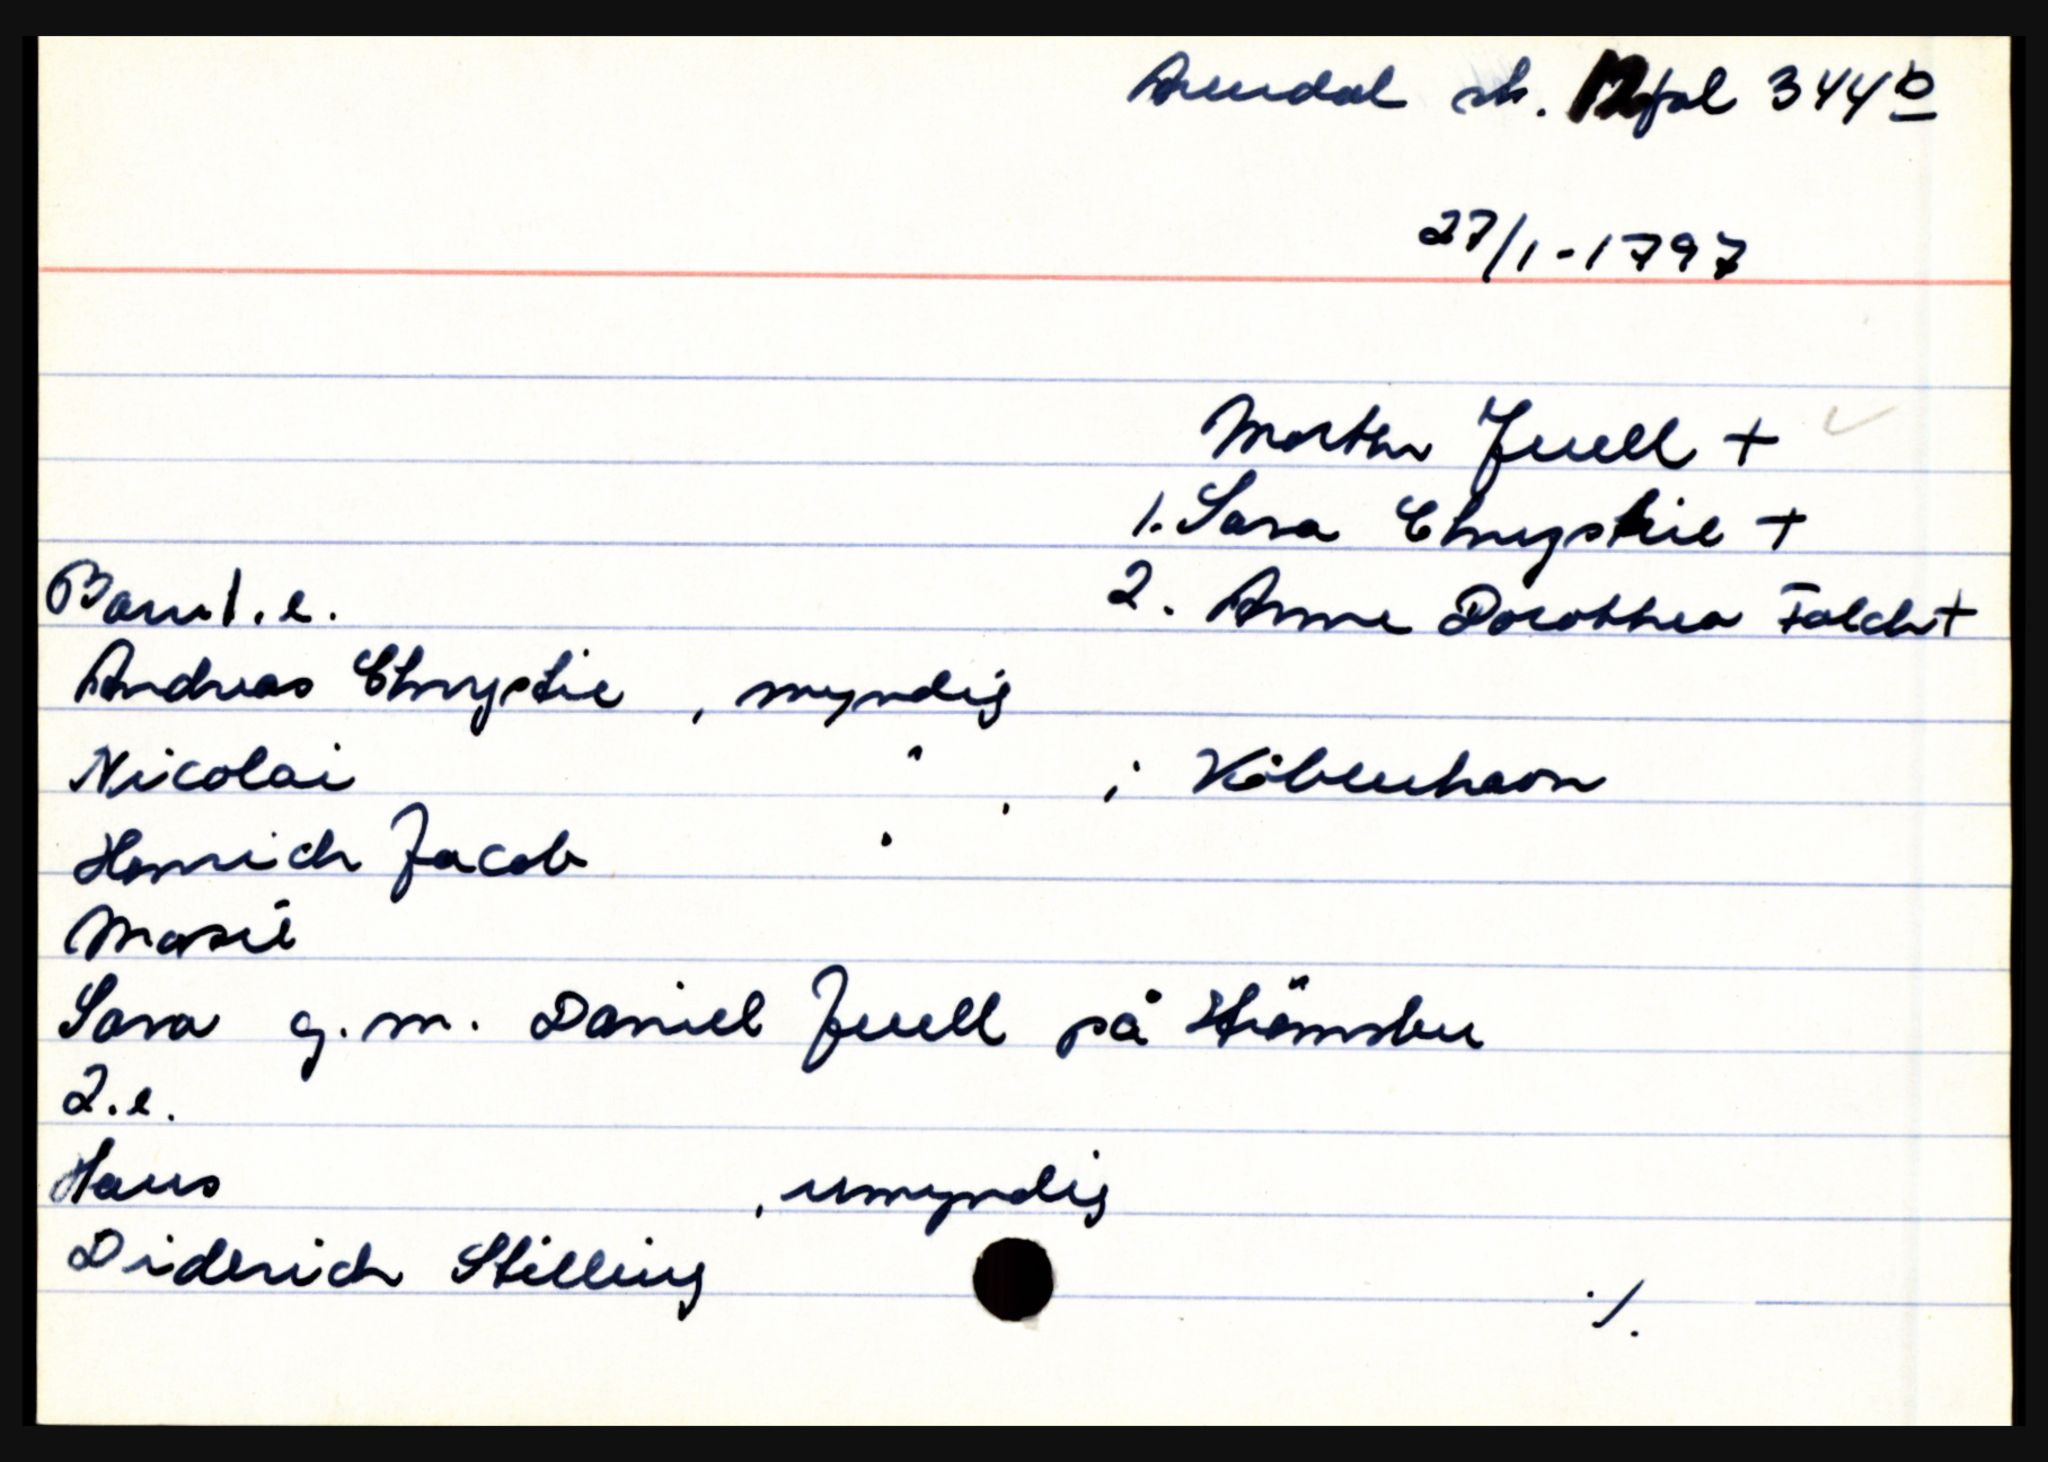 Arendal sk. 12 fol 344 b
27/1-1797
Morten Juell +
1. Sara Chrystie +
2. Anne Dorothea Falch +
Barn 1.e.
Andreas Chrystie , myndig
Nicolai " , i Köbenhavn
Henrich Jacob "
Marie
Sara g.m. Daniel Juell på Strömsbu
2.e.
Hans , umyndig
Diderich Stilling
./.